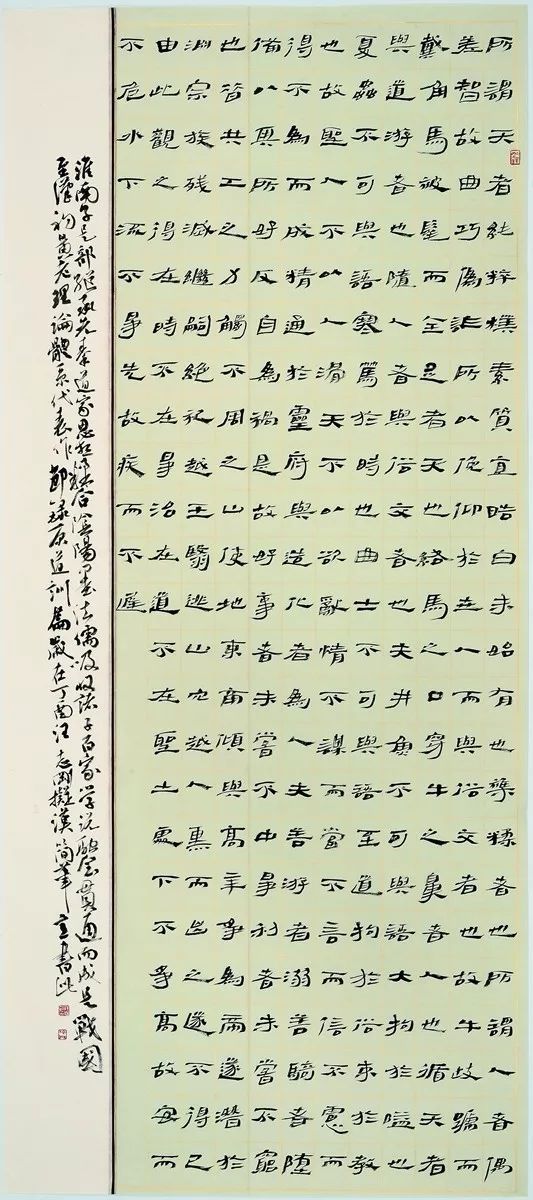 所謂天者純粹樸素質直皓白未始有也雜糅者也所謂人者偶
差智故曲巧偽詐所以俛仰於世人而與俗交者也故牛歧蹏而
戴角馬被髦而全足者天也絡馬之口穿牛之鼻者人也循天者
與道游者也隨人者與俗交者也夫井魚不可與語大拘於隘也
夏蟲不可與語寒篤於時也曲士不可與語至道拘於俗束於教
也故聖人不以人滑天不以欲亂情不謀而當不言而信不慮而
得不為而成精通於靈府與造化者為人夫善游者溺善騎者墮
備以其所好反自為禍是故好事者未嘗不中爭利者未嘗不窮
也昔共工之力觸不周之山使地東南傾與高辛爭為帝遂潛於
淵宗族殘滅繼嗣絕祀越王翳逃山穴越人熏而出之遂不得已
由此觀之得在時不在爭治在道不在聖土處下不爭高故安而
不危水下流不爭先故疾而不遲
淮南子是部繼承先秦道家思想糅合陰陽墨法儒汲收諸子百家学説融会貫通而成是戰國
至漢初黃老理論體系代表作節錄原道訓篇歲在丁酉汪志擬漢簡筆意書此